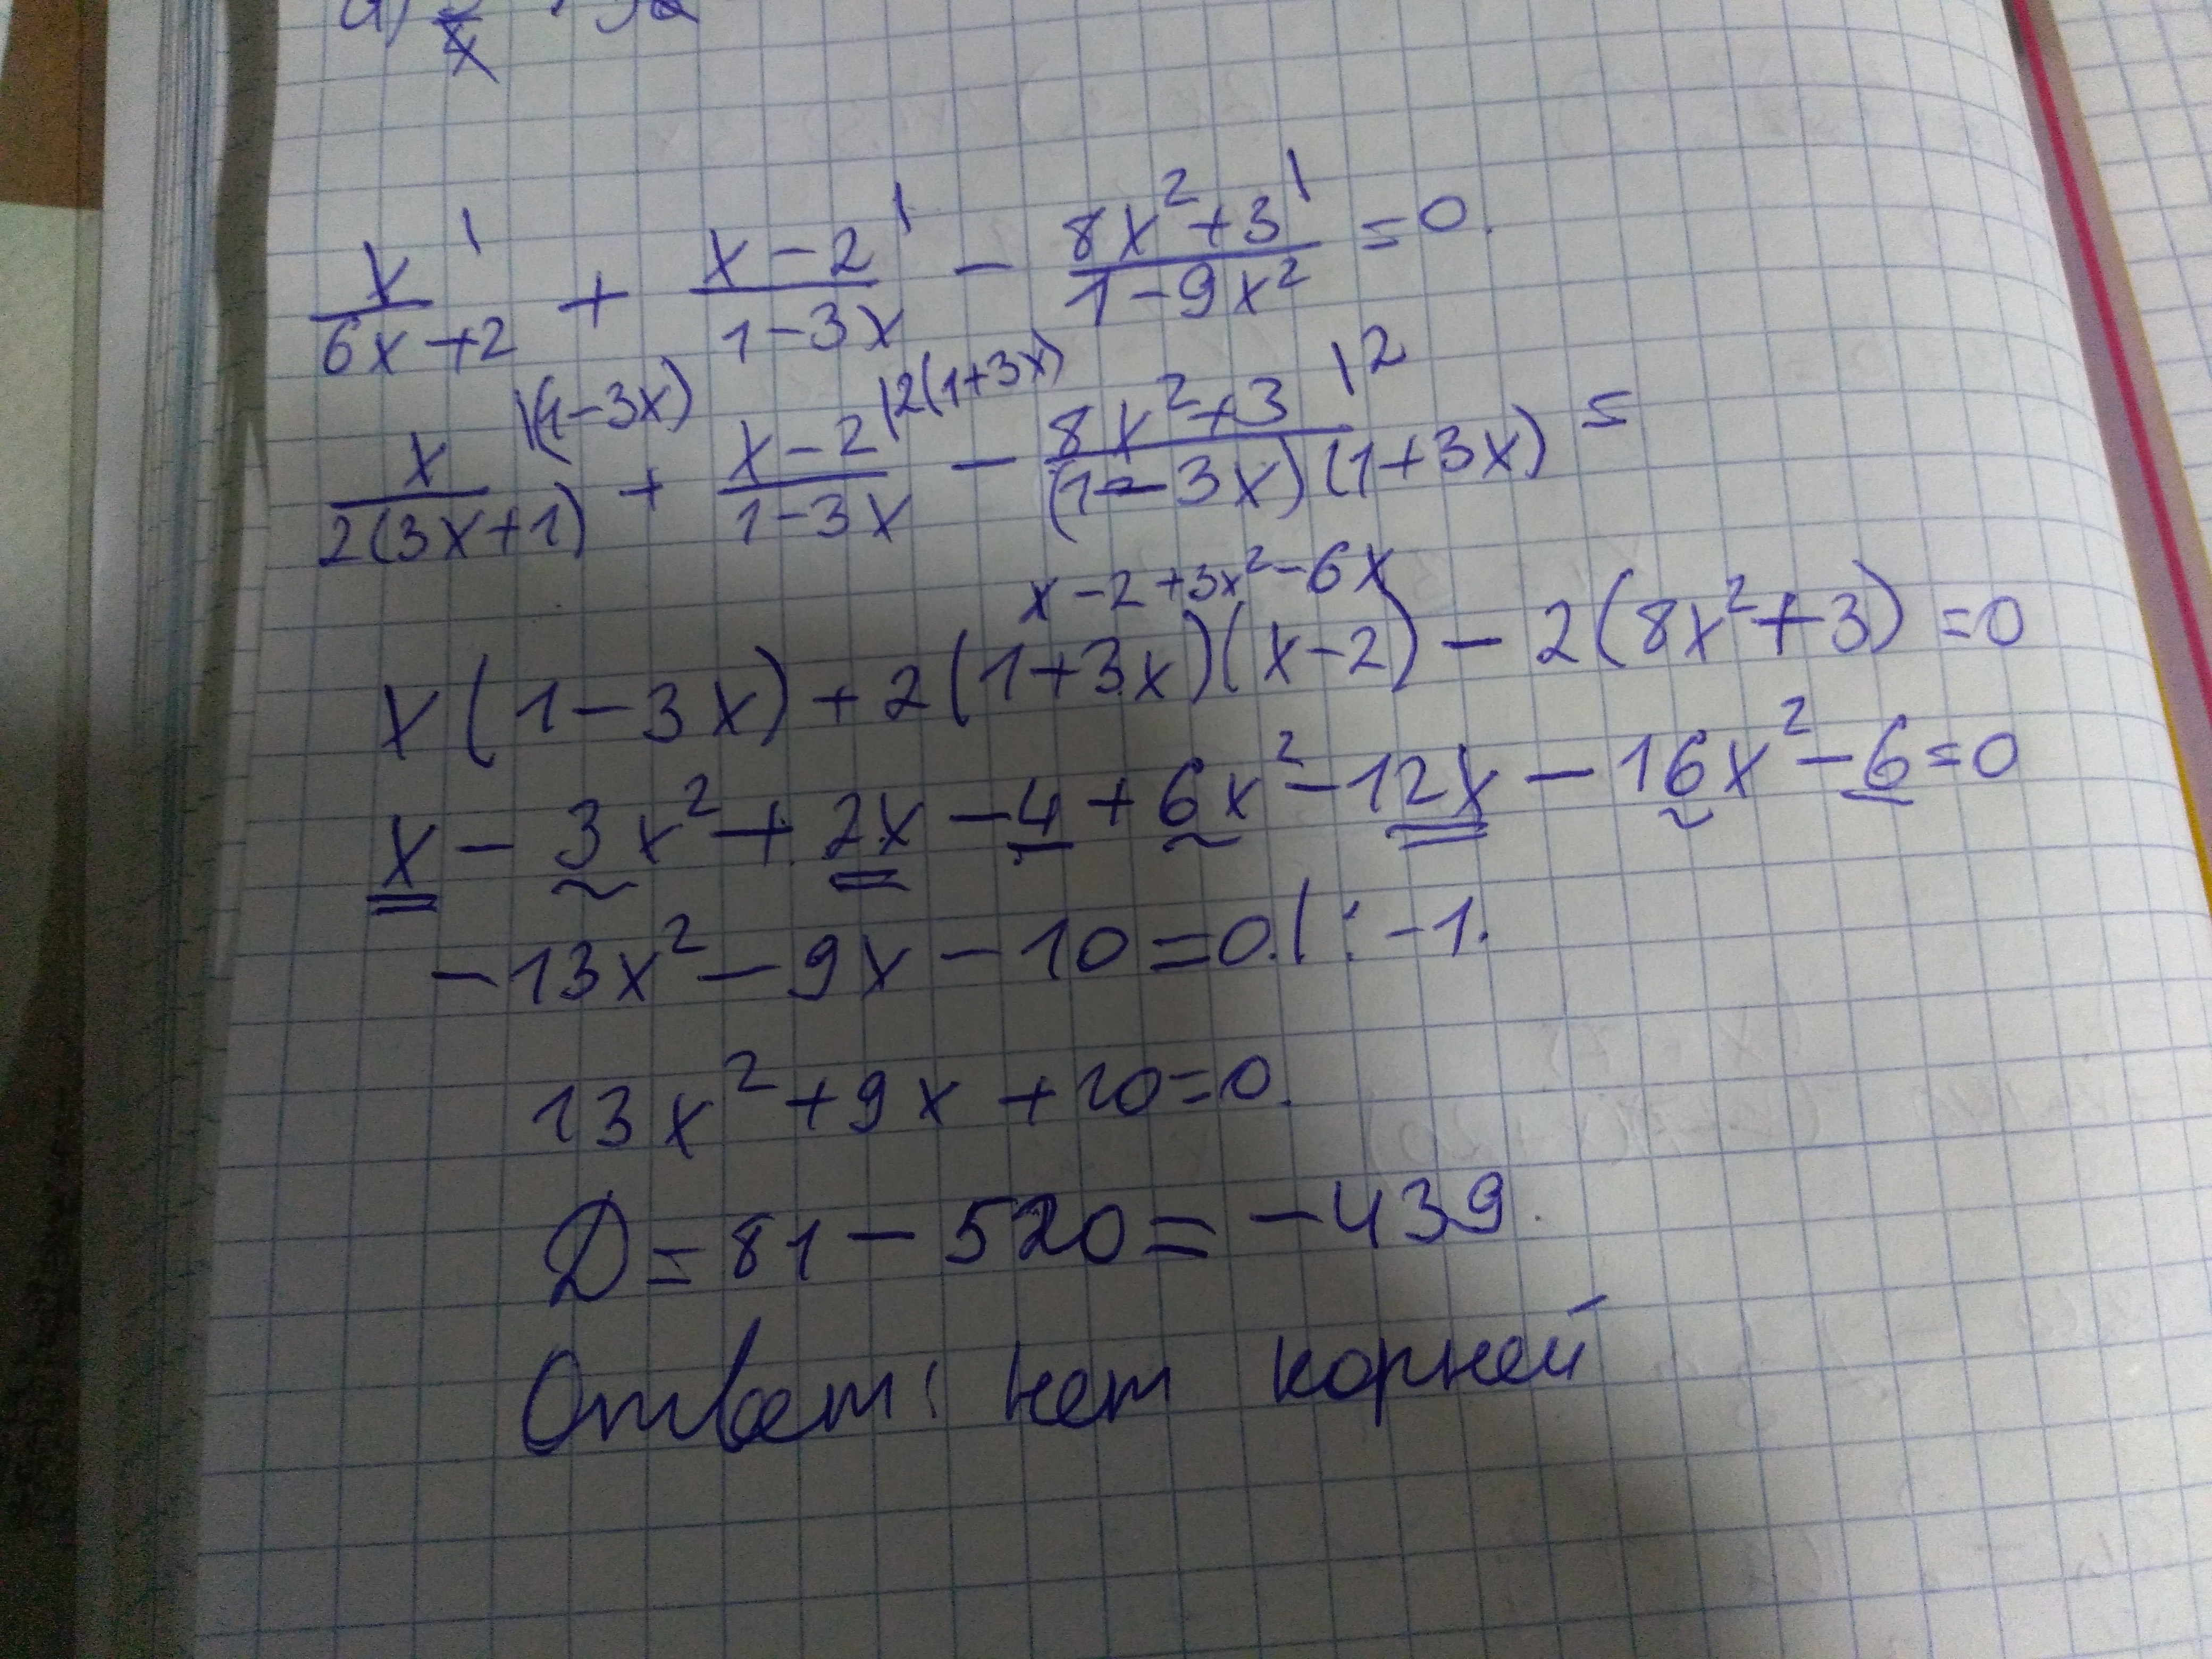 x/(6x+2) + (x-2)/(1-3x) - (8x²+3)/(1-9x²) =0.
x/(2(3x+1)) |(1-3x) + (x-2)/(1-3x) |2(1+3x) - (8x²+3)/((1-3x)(1+3x)) |2 =
x-2+3x²-6x
x(1-3x)+2(1+3x)(x-2)-2(8x²+3)=0
x-3x²+2x-4+6x²-12x-16x²-6=0
-13x²-9x-10=0.|:-1.
13x²+9x+10=0.
D=81-520=-439.
Ответ: нет корней